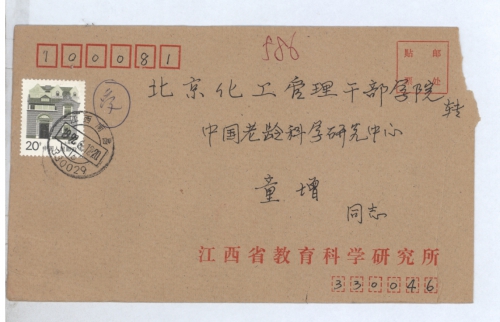 586
700081
贴 邮
票 处
北京化工管理干部学院转
中国老龄科学研究中心
童增
同志
20分
30029
江西省教育科学研究所
330046